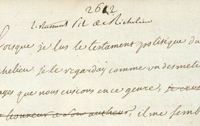 2612
testament pol de Richelieu
lorsque je lus le testament politique du
chelieu je le regarday comme un des meilleu
ages que nous eussions en ce genre,
il me semb